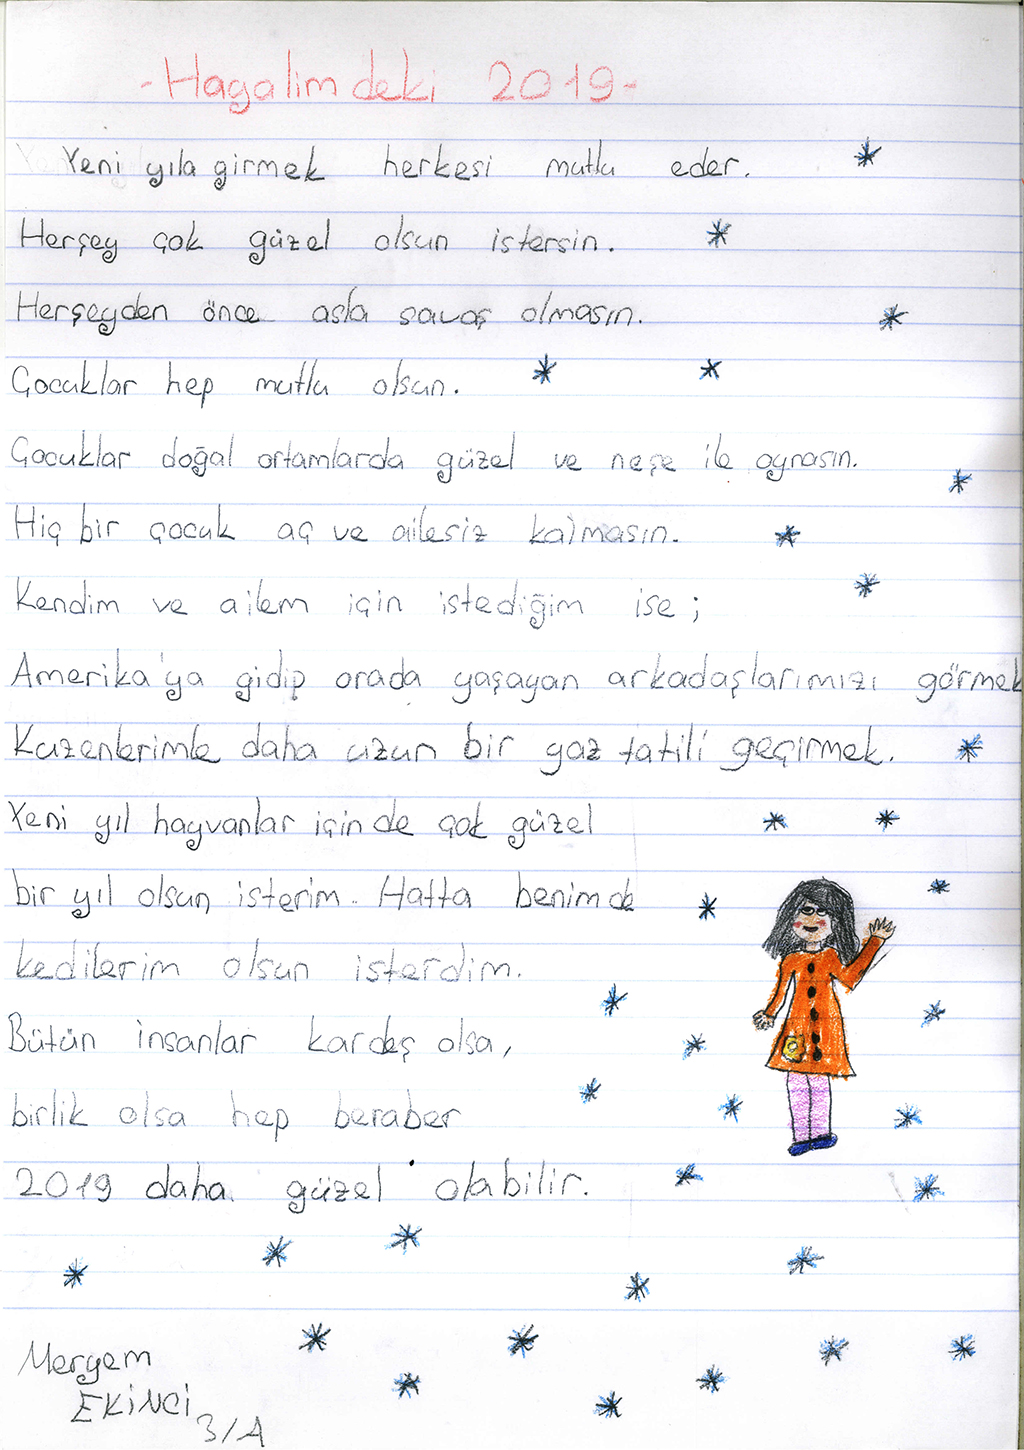 -Hayalimdeki 2019-
Yeni yıla girmek herkesi mutlu eder.
Herşey çok güzel olsun istersin.
Herşeyden önce asla savaş olmasın.
Çocuklar hep mutlu olsun.
Çocuklar doğal ortamlarda güzel ve neşe ile oynasın.
Hiç bir çocuk aç ve ailesiz kalmasın.
Kendim ve ailem için istediğim ise;
Amerika'ya gidip orada yaşayan arkadaşlarımızı görmek
Kuzenlerimle daha uzun bir yaz tatili geçirmek.
Yeni yıl hayvanlar içinde çok güzel
bir yıl olsun isterim. Hatta benimde
kedilerim olsun isterdim.
Bütün insanlar kardeş olsa,
birlik olsa hep beraber
2019 daha güzel olabilir.
Meryem
EKİNCİ
3/A